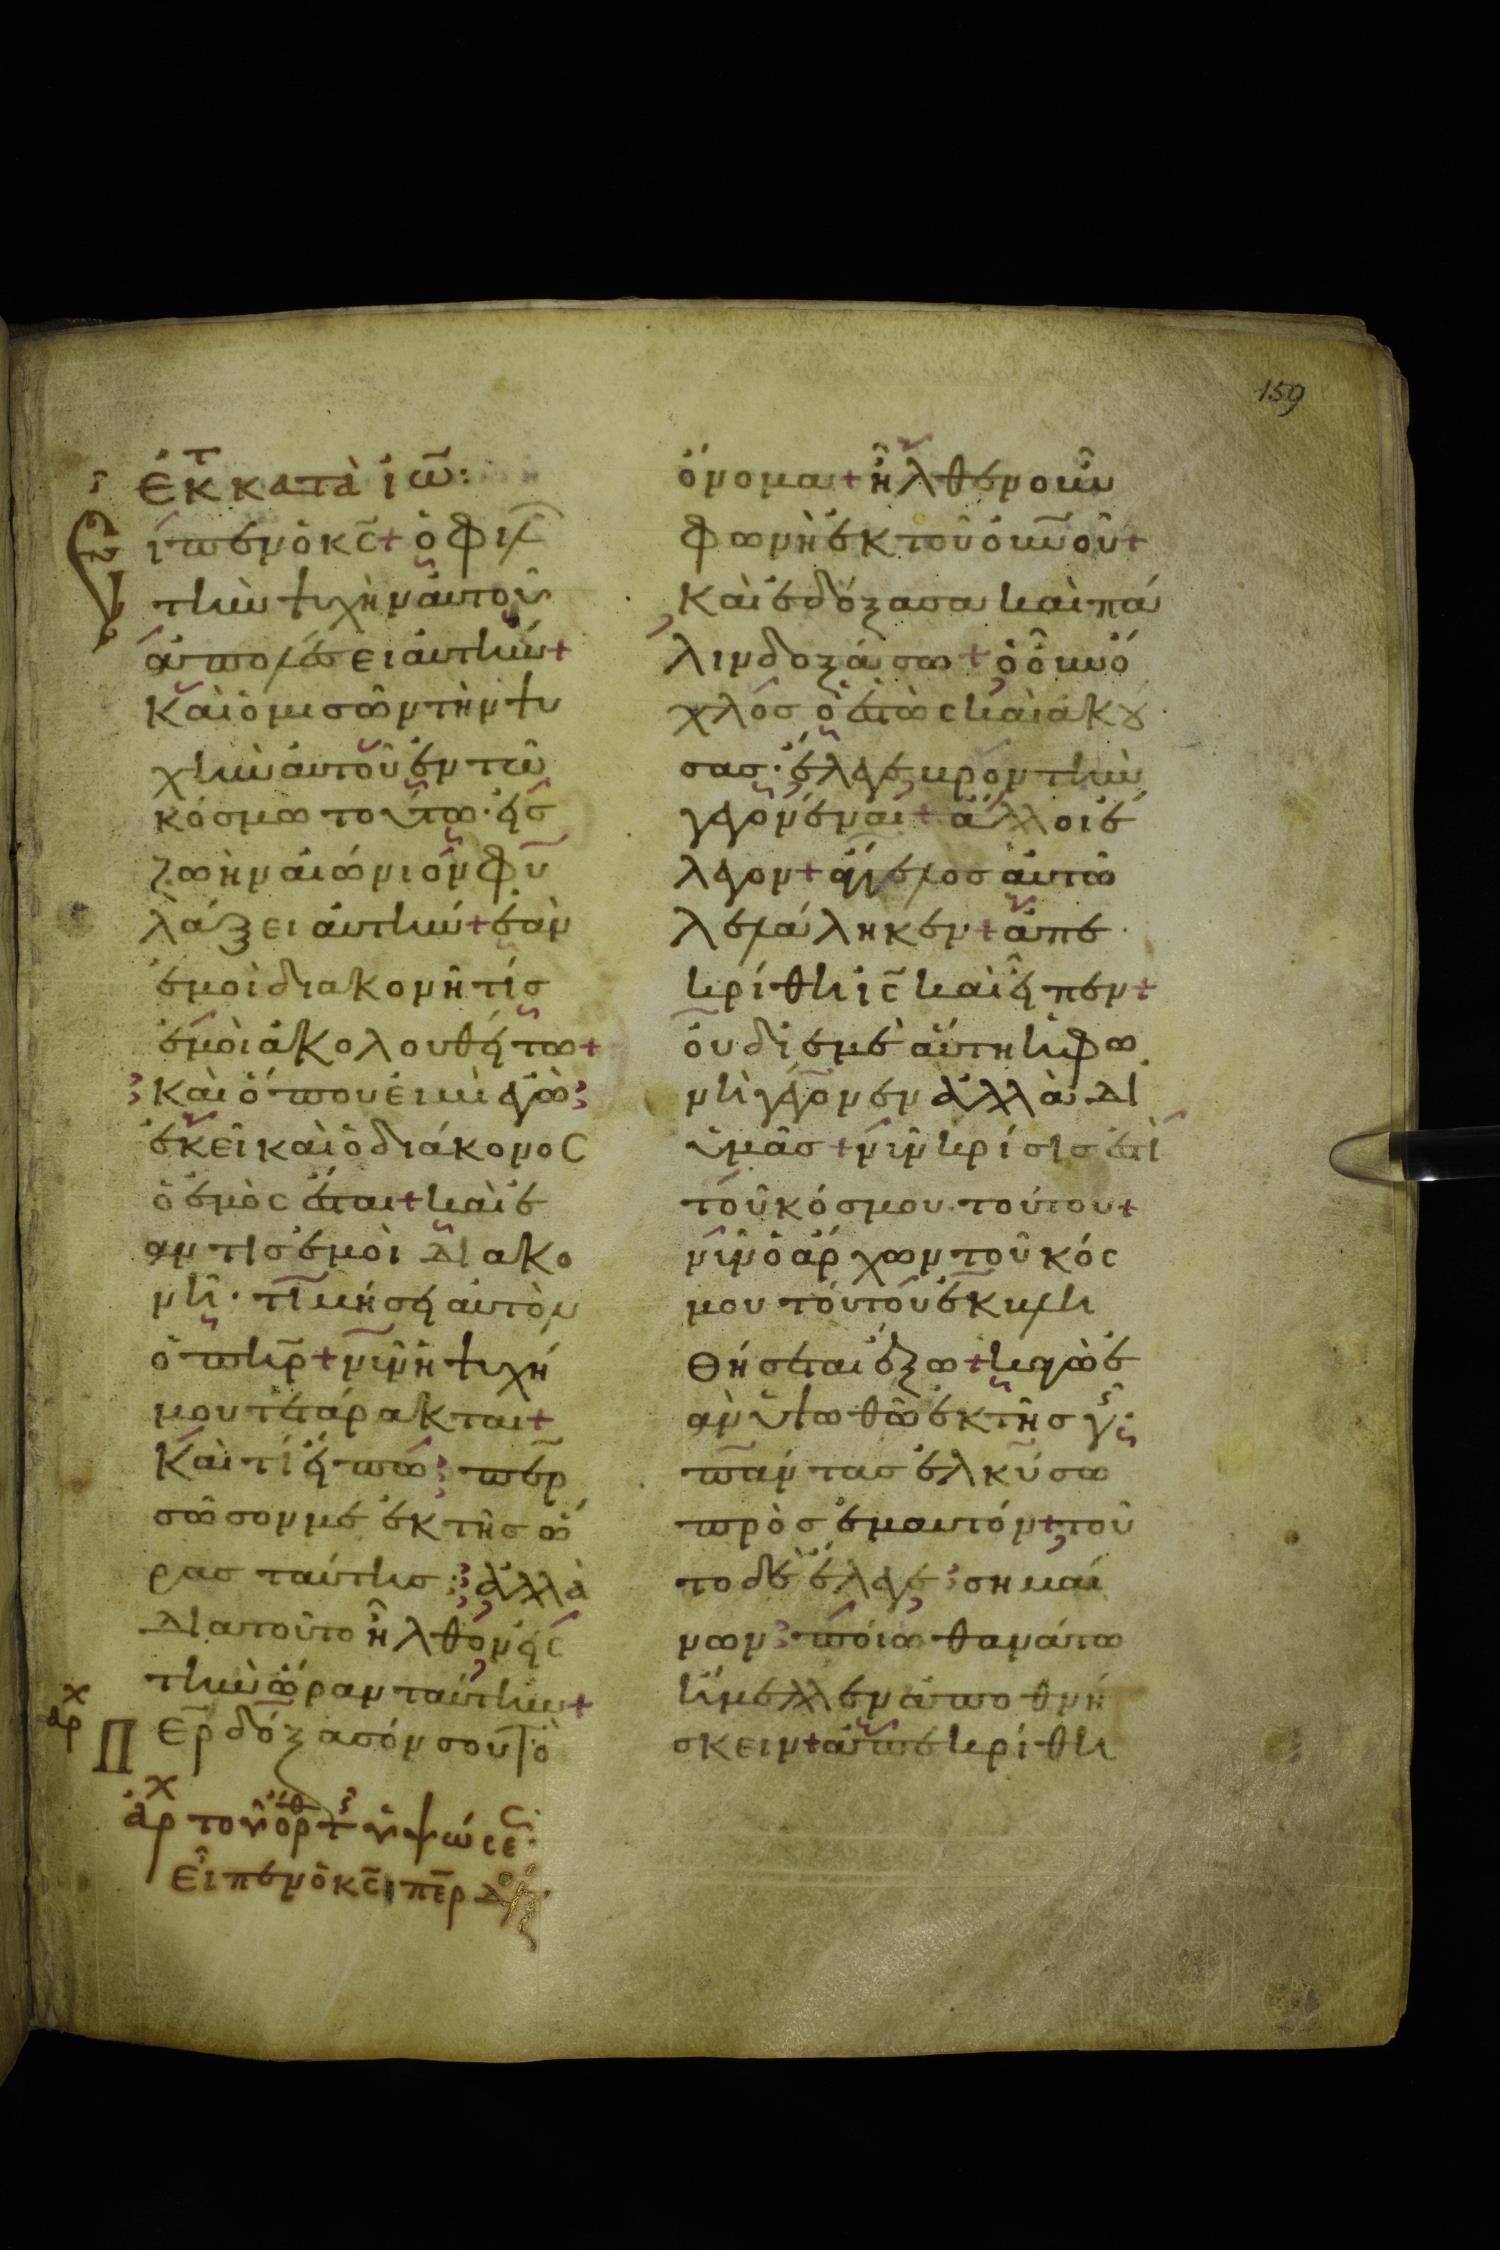 159
ἐκ τ κατὰ ἰω̃:
Εἶπεν ὁ κ̅ς̅ + ὁ φιλῶν
τὴν ψυχὴν αὐτοῦ
ἀπολέσει αὐτήν +
καὶ ὁ μισῶν τὴν ψυ
χὴν αὐτοῦ ἐν τῶ
κόσμω τούτω · εἰς
ζωὴν αἰώνιον φυ
λάξει αὐτήν + ἐὰν
ἐμοὶ διακονῆ τίς
ἐμοὶ ἀκολουθείτω +
καὶ ὅπου εἰμὶ ἐγὼ
ἐκεῖ καὶ ὁ διάκονος
ὁ ἐμὸς ἔσται + καὶ ἐ
άν τις ἐμοὶ διακο
νῆ · τιμήσει αὐτὸν
ὁ π̅η̅ρ̅ + νῦν ἡ ψυχή
μου τετάρακται +
καὶ τί εἴπω π̅ε̅ρ̅
σῶσον με ἐκ τῆς ὥ
ρας ταύτης ἀλλὰ
διατοῦτο ἦλθον εἰς
τὴν ὥραν ταύτην +
ἀρχ Περ δόξασόν σου τὸ
ἀρχ τοῦ ὄρθ τ ὑψώσε
εἶπεν ὁ κ̅ς̅ π̅ε̅ρ̅
ὄνομα + ἦλθεν οὖν
φωνὴ ἐκ τοῦ οὐνοῦ +
καὶ ἐδόξασα καὶ πά
λιν δοξάσω + ὁ οὖν ὄ
χλος ὁ ἑστὼς καὶ ἀκού
σας · ἔλεγεν βροντὴν
γεγονέναι + ἄλλοι ἔ
λεγον + ἄγγελος αὐτῶ
λελάληκεν + ἀπε
κρίθη ἰ̅ς̅ καὶ εἶπεν +
οὐ δι ἐμὲ αὕτη ἡ φω
νὴ γέγονεν ἀλλὰ δι
ὑμᾶς + νῦν κρίσις ἐστὶ
τοῦ κόσμου τούτου +
νῦν ὁ ἄρχων τοῦ κόσ
μου τούτου ἐκβλη
θήσεται ἔξω + κἀγὼ ἐ
ὰν ὑψωθῶ ἐκ τῆς γῆς
πάντας ἑλκύσω
πρὸς ἐμαυτόν + τοῦ
το δὲ ἔλεγε σημαί
νων ποίω θανάτω
ἤμελλεν ἀποθνή
σκειν + ἀπεκρίθη